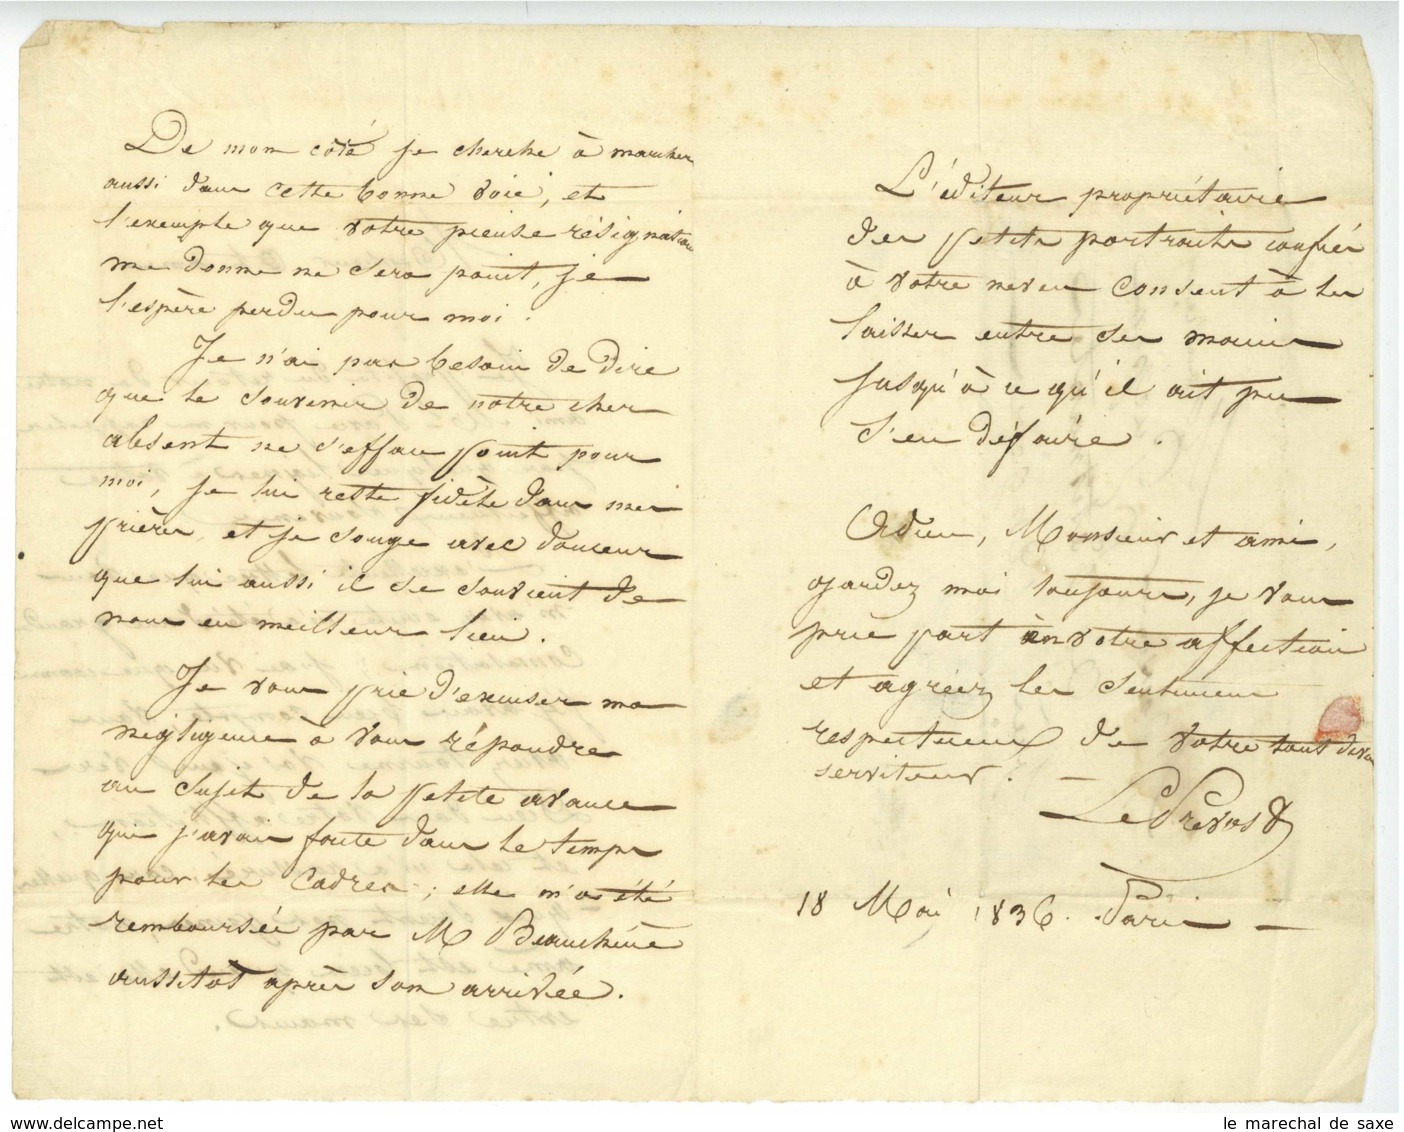 De mon côté je cherche à marcher
aussi dans cette bonne voie, et
l'exemple que votre pieuse résignation
me donne ne sera point, je
l'espère perdu pour moi.
Je n'ai pas besoin de dire
que le souvenir de notre cher
absent ne s'efface point pour
moi, je lui reste fidèle dans mes
prières, et je songe avec douceur
que lui aussi il se souvient de
nous en meilleur lieu.
Je vous prie d'excuser ma
négligence à vous répondre
au sujet de la petite avance
que j'avais faite dans le temps
pour les cadres ; elle m'a été
remboursée par M Beauchêne
aussitot après son arrivée.
L'éditeur propriétaire
des petits portraits confiés
à votre neveu consent à les
laisser entre ses mains
jusqu'à ce qu'il ait pu
s'en défaire.
Adieu, Monsieur et ami,
gardez moi toujours, je vous
prie part en votre affection
et agréez les sentimens
respectueux de votre tout dévoué
serviteur. —
Le Prevost
18 Mai 1836. Paris —
www.delcampe.net
le marechal de saxe